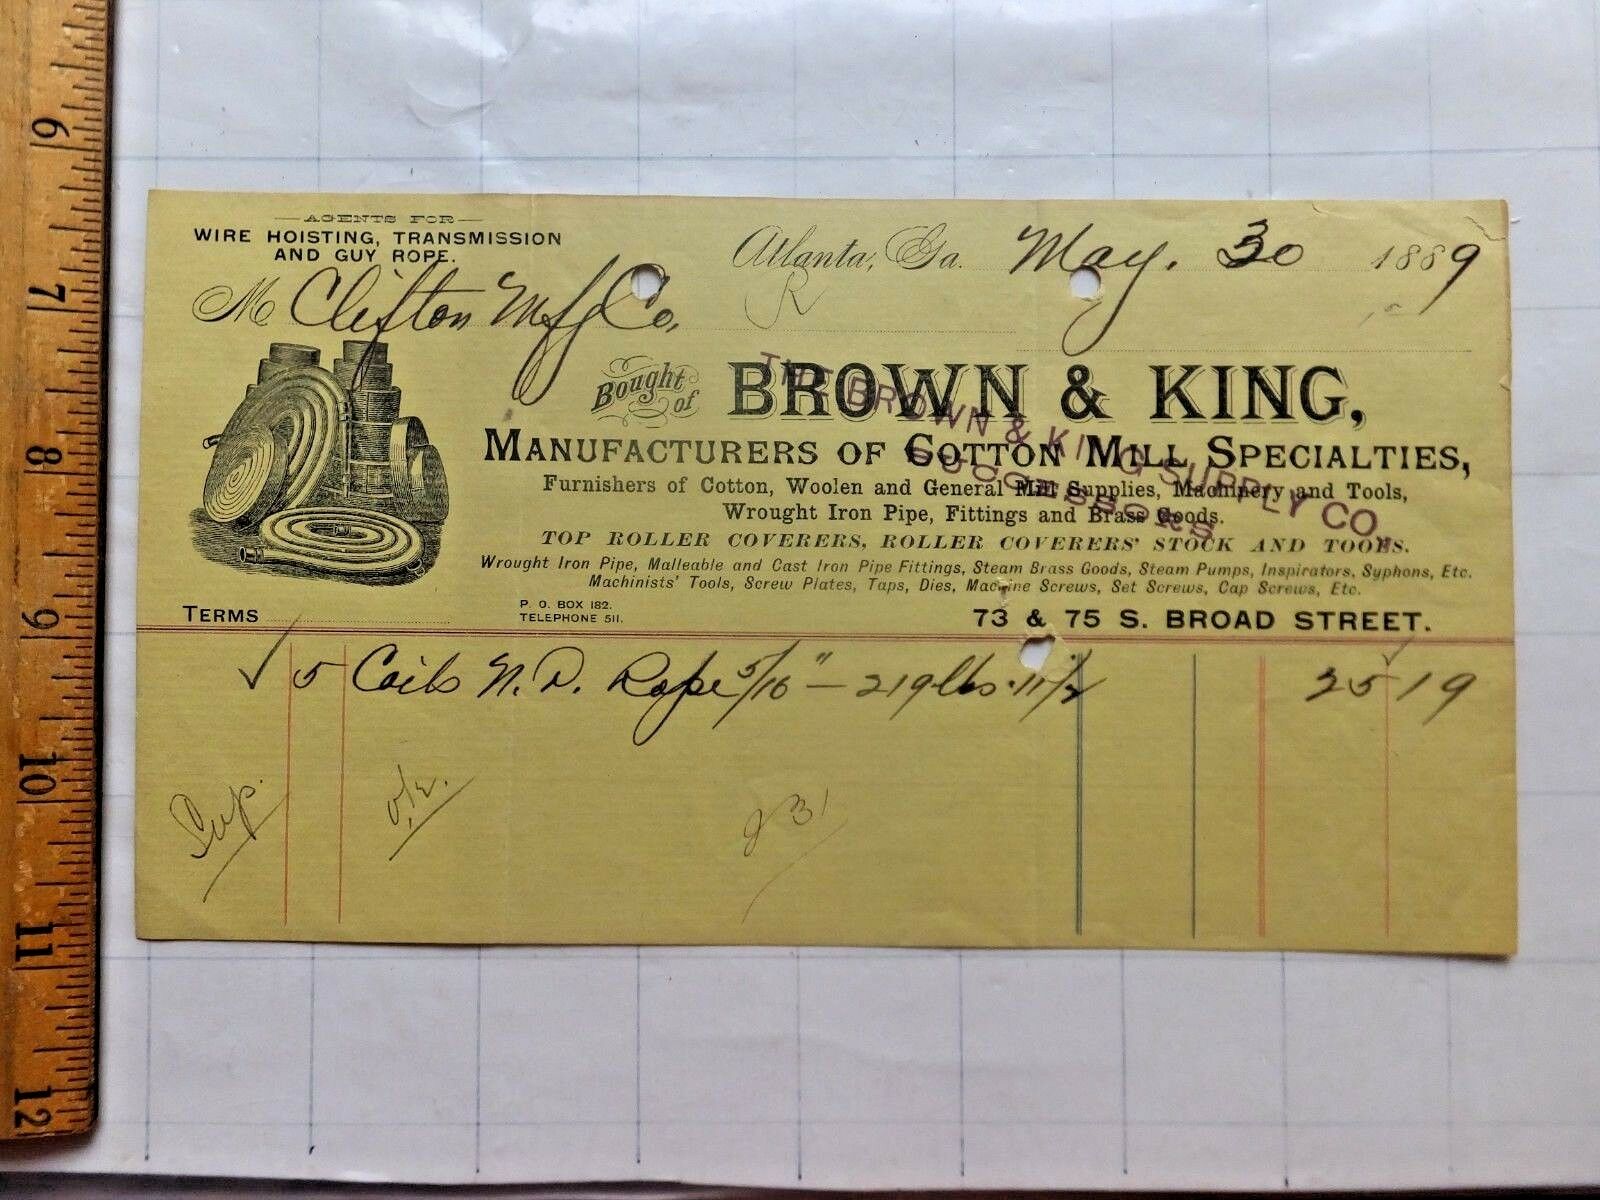 AGENTS FOR
WIRE HOISTING, TRANSMISSION
AND GUY ROPE.
Atlanta, Ga. May. 30 1889
M Clifton Mfg Co.
Bought of BROWN & KING,
THE BROWN & KING SUPPLY CO.
SUCCESSORS
MANUFACTURERS OF COTTON MILL SPECIALTIES,
Furnishers of Cotton, Woolen and General Mill Supplies, Machinery and Tools,
Wrought Iron Pipe, Fittings and Brass Goods.
TOP ROLLER COVERERS, ROLLER COVERERS' STOCK AND TOOLS.
Wrought Iron Pipe, Malleable and Cast Iron Pipe Fittings, Steam Brass Goods, Steam Pumps, Inspirators, Syphons, Etc.
Machinists' Tools, Screw Plates, Taps, Dies, Machine Screws, Set Screws, Cap Screws, Etc.
TERMS
P. O. BOX 182.
TELEPHONE 511.
73 & 75 S. BROAD STREET.
5 Coils N. D. Rope 5/16" – 219 lbs. 11 1/2 25 19
Sup. o.k. 231
6
7
8
9
10
11
12